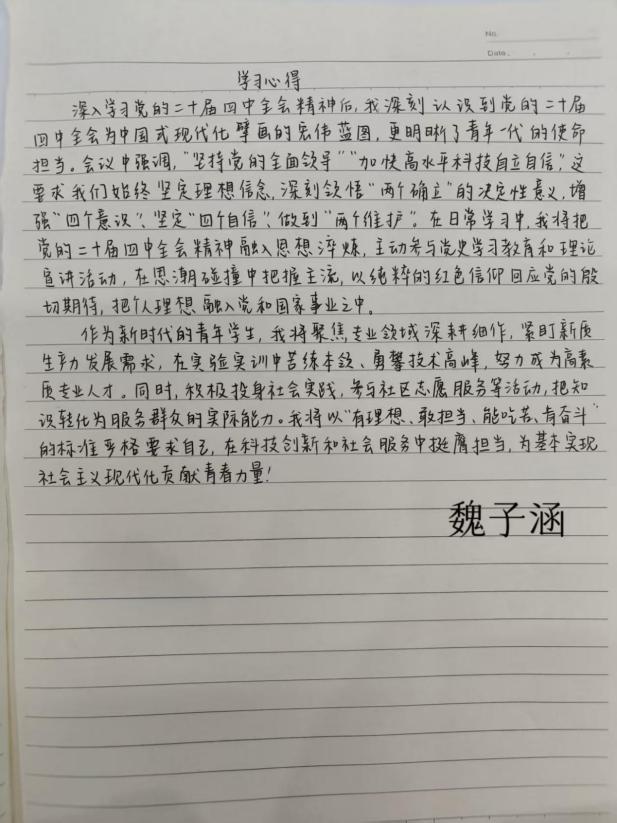 No.
Date.
学习心得
深入学习党的二十届四中全会精神后,我深刻认识到党的二十届
四中全会为中国式现代化擘画的宏伟蓝图,更明晰了青年一代的使命
担当。会议中强调,“坚持党的全面领导”“加快高水平科技自立自信”,这
要求我们始终坚定理想信念,深刻领悟“两个确立”的决定性意义,增
强“四个意识”、坚定“四个自信”、做到“两个维护”。在日常学习中,我将把
党的二十届四中全会精神融入思想淬炼,主动参与党史学习教育和理论
宣讲活动,在思潮碰撞中把握主流,以纯粹的红色信仰回应党的殷
切期待,把个人理想融入党和国家事业之中。
作为新时代的青年学生,我将聚焦专业领域深耕细作,紧盯新质
生产力发展需求,在实验实训中苦练本领、勇攀技术高峰,努力成为高素
质专业人才。同时,积极投身社会实践,参与社区志愿服务等活动,把知
识转化为服务群众的实际能力。我将以“有理想、敢担当、能吃苦、肯奋斗”
的标准严格要求自己,在科技创新和社会服务中挺膺担当,为基本实现
社会主义现代化贡献青春力量!
魏子涵